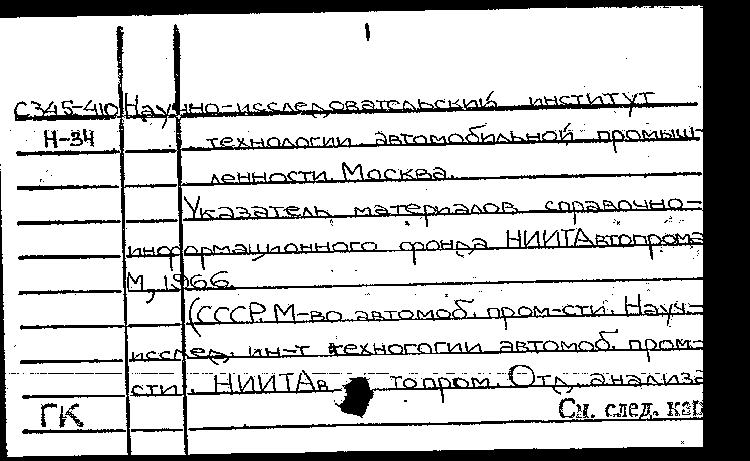 1
С345-410 Научно-исследовательский институт
Н-34 технологии автомобильной промыш-
ленности. Москва.
Указатель материалов справочно-
информационного фонда НИИТАвтопрома
М, 1966.
(СССР. М-во автомоб. пром-сти. Науч-
исслед. ин-т техногогии автомоб. пром-
сти. НИИТАв топром. Отд. анализа
ГК См. след. кар